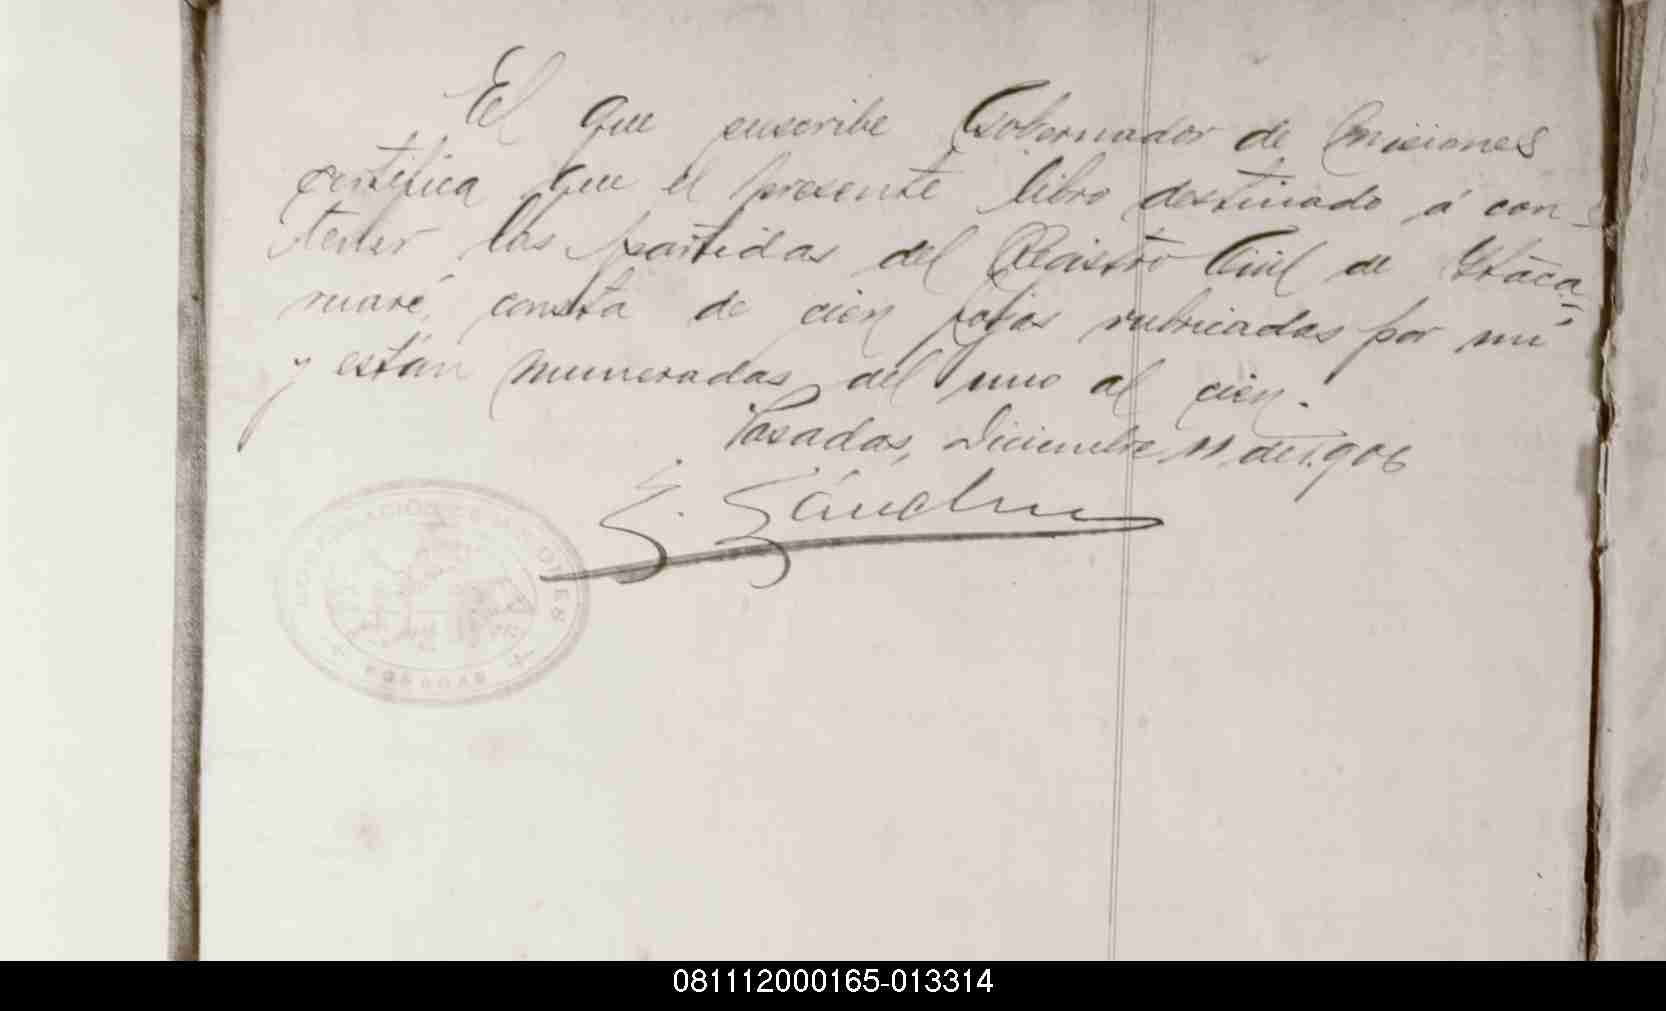 El que suscribe Gobernador de Misiones
certifica que el presente libro destinado á con-
tener las partidas del Registro Civil de Ytaca-
ruaré, consta de cien fojas rubricadas por mi
y están numeradas del uno al cien.
Posadas, Diciembre 11 de 1906
E. Sánchez
GOBERNACIÓN DE MISIONES
POSADAS
081112000165-013314